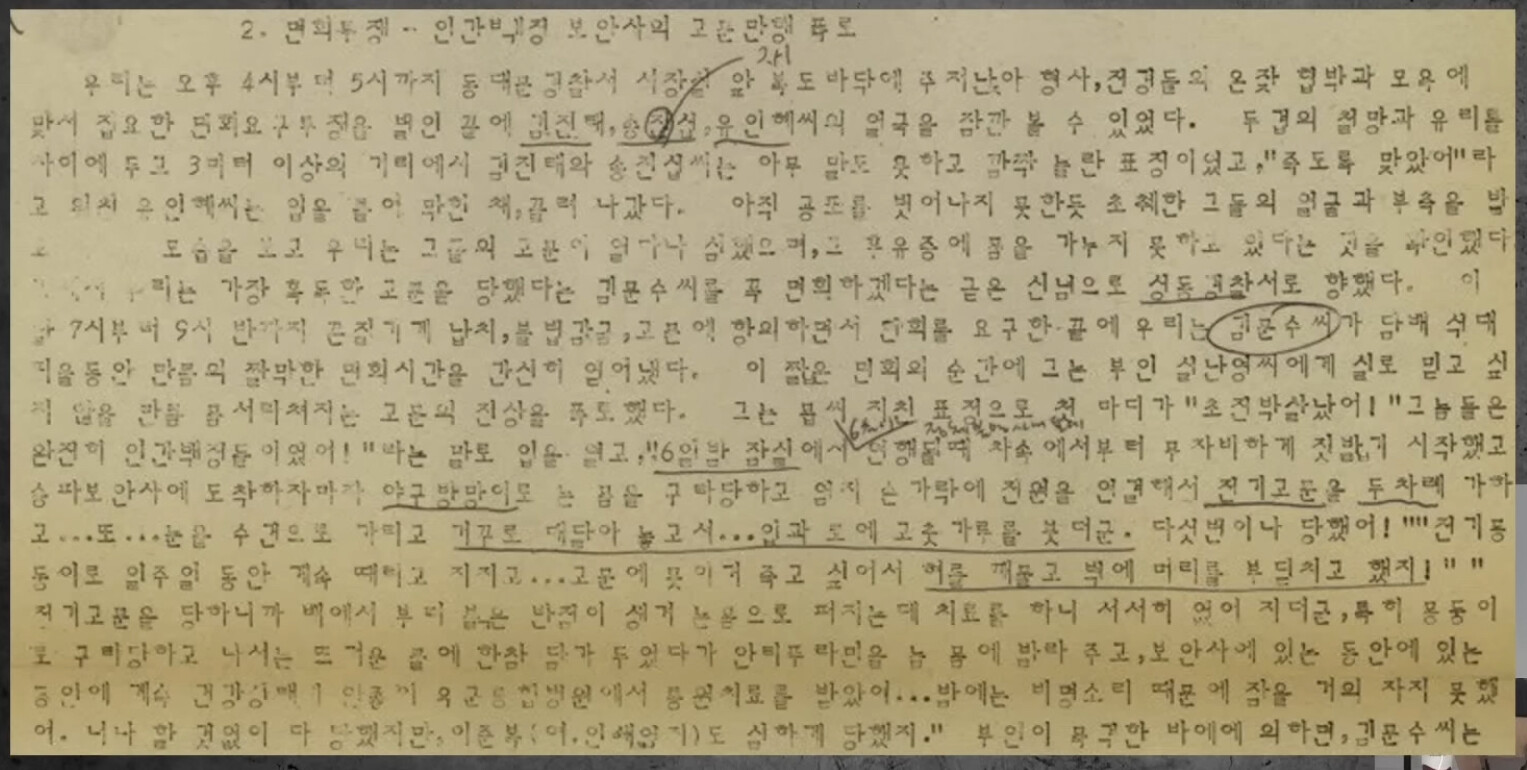 2. 면회투쟁 - 인간백정 보안사의 고문만행 폭로
우리는 오후 4시부터 5시까지 동대문경찰서 서장실 앞 복도바닥에 주저앉아 형사,전경들의 온갖 협박과 모욕에
맞서 집요한 면회요구투쟁을 벌인 끝에 김진태,송진섭,유인혜씨의 얼굴을 잠깐 볼 수 있었다. 두겹의 철망과 유리를
사이에 두고 3미터 이상의 거리에서 김진태와 송진섭씨는 아무 말도 못하고 깜짝 놀란 표정이었고,"죽도록 맞았어"라
고 외친 유인혜씨는 입을 틀어 막힌 채,끌려 나갔다. 아직 공포를 벗어나지 못한듯 초췌한 그들의 얼굴과 부축을 받
모습을 보고 우리는 그들의 고문이 얼마나 심했으며,그 후유증에 몸을 가누지 못하고 있다는 것을 확인했다
우리는 가장 혹독한 고문을 당했다는 김문수씨를 꼭 면회하겠다는 굳은 신념으로 성동경찰서로 향했다. 이
날 7시부터 9시 반까지 끈질기게 납치,불법감금,고문에 항의하면서 면회를 요구한 끝에 우리는 김문수씨가 담배 석대
피울동안 만큼의 짤막한 면회시간을 간신히 얻어냈다. 이 짧은 면회의 순간에 그는 부인 설난영씨에게 실로 믿고 싶
지 않을 만큼 몸서리쳐지는 고문의 진상을 폭로했다. 그는 몹씨 지친 표정으로 첫 마디가 "초전박살났어!"그놈들은
완전히 인간백정들이었어!"라는 말로 입을 열고,"6일밤 잠실에서 연행될때 차속에서부터 무자비하게 짓밟기 시작했고
송파보안사에 도착하자마자 야구방망이로 온 몸을 구타당하고 엄지 손가락에 전원을 연결해서 전기고문을 두차례 가하
고...또...눈을 수건으로 가리고 거꾸로 매달아 놓고서...입과 코에 고춧가루를 붓더군. 다섯번이나 당했어!""전기몽
둥이로 일주일 동안 계속 때리고 지지고...고문에 못이겨 죽고 싶어서 혀를 깨물고 벽에 머리를 부딪치고 했지!""
전기고문을 당하니까 백에서 부터 붉은 반점이 생겨 온몸으로 퍼지는데 치료를 하니 서서히 없어 지더군,특히 몽둥이
로 구타당하고 나서는 뜨거운 물에 한참 담가 두었다가 안티푸라민을 온 몸에 발라 주고,보안사에 있는 동안에 있는
동안에 계속 건강상태가 안좋아 국군통합병원에서 통원치료를 받았어...밤에는 비명소리 때문에 잠을 거의 자지 못했
어. 너나 할 것없이 다 당했지만,이준복도 심하게 당했지." 부인이 목격한 바에에 의하면,김문수씨는